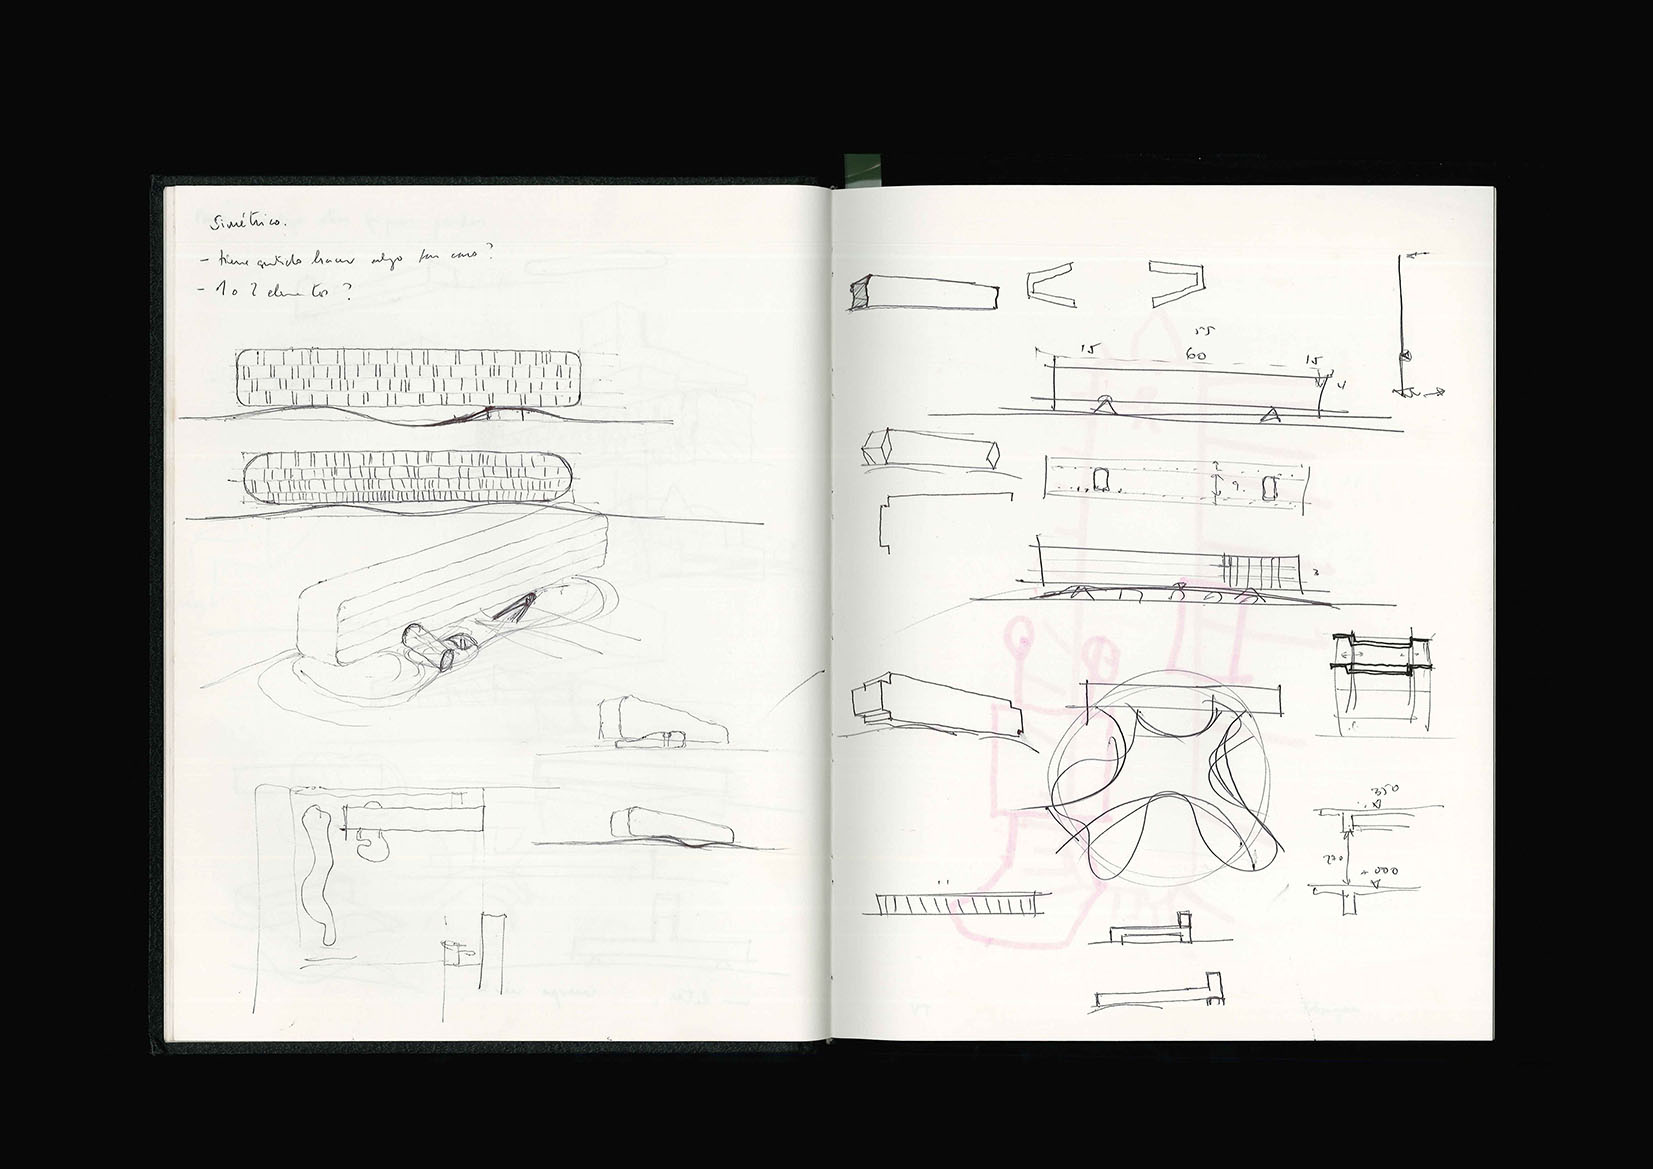 Simétrico.
- tiene sentido hacer algo tan caro?
- 1 o 2 elementos?
55
15 60 15
4
2
9.
3
350
250
+000